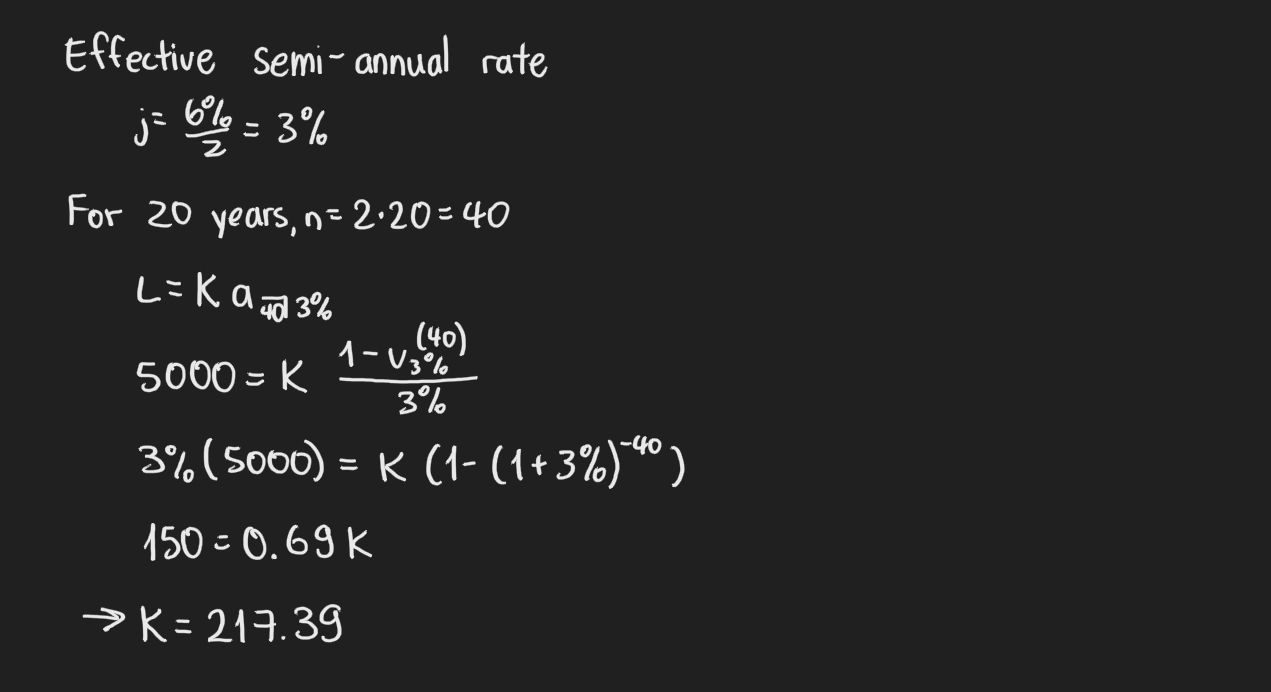 Effective semi-annual rate
j = 6%/2 = 3%
For 20 years, n = 2·20 = 40
L = K a 40⌉ 3%
5000 = K (1 - v_3%^(40))/3%
3% (5000) = K (1 - (1 + 3%)^-40)
150 = 0.69 K
→ K = 217.39